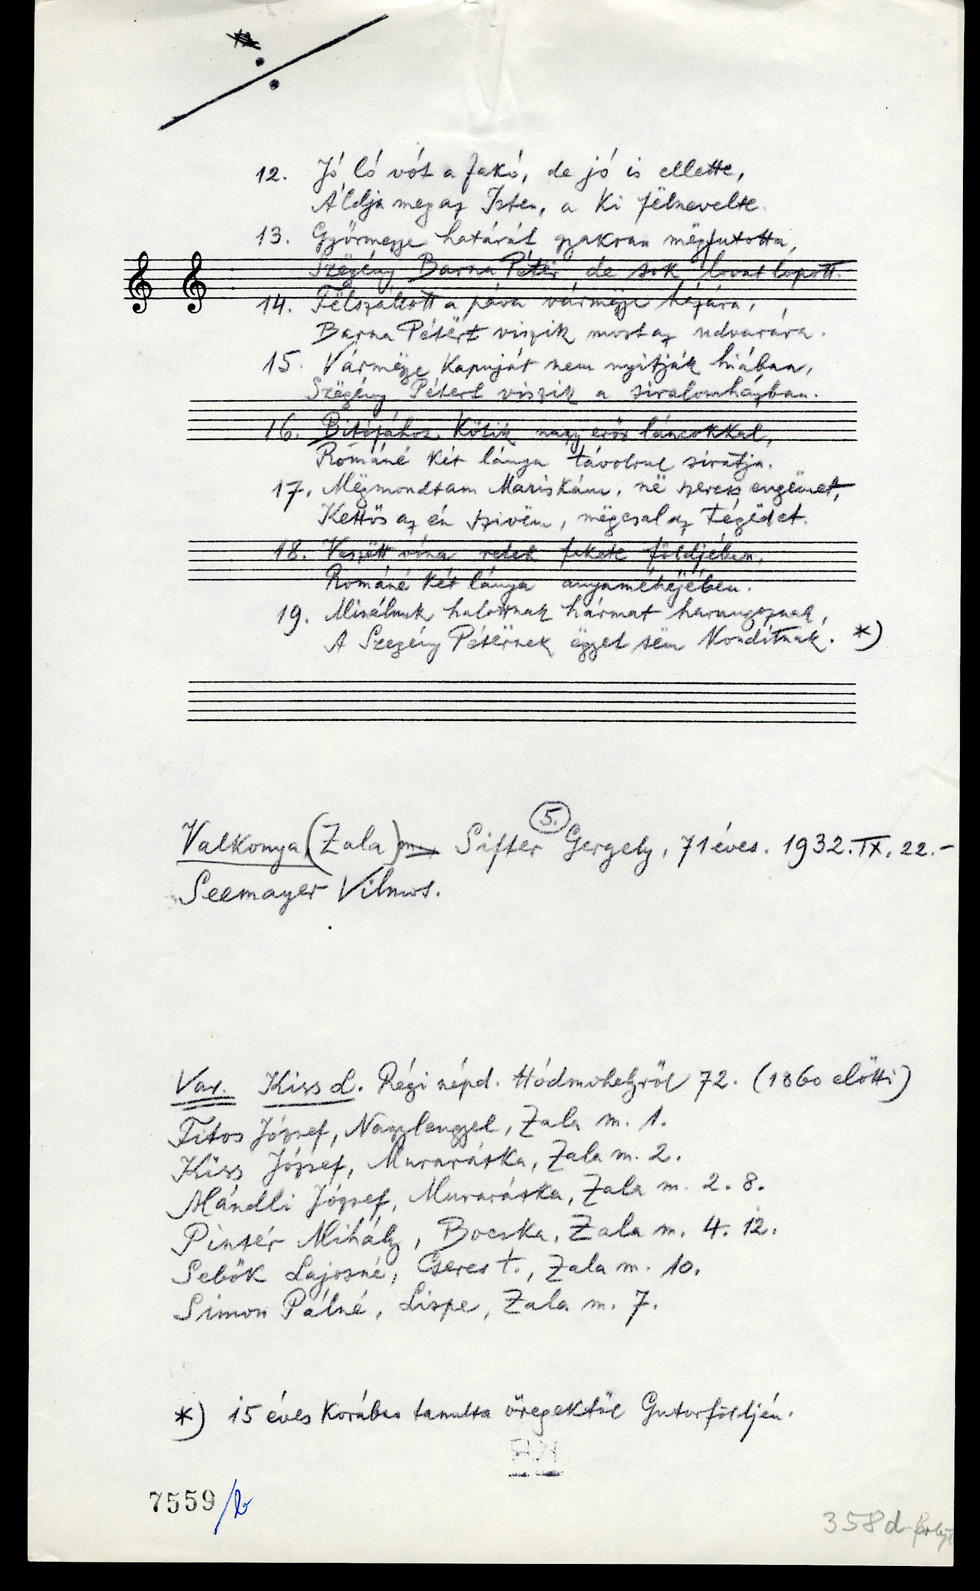 12. Jó ló vót a fakó, de jó is ellette,
Áldja meg az Isten, a ki fëlnevelte.
13. Győrmegye határát gyakran mëgfutotta,
Szëgény Barna Pétër de sok lovat lopott.
14. Fëlszállott a páva vármëgye házára,
Barna Pétërt viszik most az udvarára.
15. Vármëgye kapuját nem nyitják hiában,
Szëgény Pétert viszik a siralomházban.
16. Bitófához kötik nagy erős láncokkal,
Románé két lánya távolrul siratja.
17. Mëgmondtam Mariskám, në szeress engëmet,
Kettős az én szivëm, mëgcsal az tégëdet.
18. Veszëtt vóna retek fekete földjében,
Románé két lánya anyaméhëjében.
19. Minálunk halottnak hármat harangoznak,
A Szegény Pétërnek ëggyet sëm kondítnak. *)
Valkonya (Zala) m. Sifter Gergely, 71 éves. 1932. IX. 22.-
5.
Seemayer Vilmos.
Var. Kiss L. Régi népd. Hódmvhelyről 72. (1860 előtti)
Titos József, Nagylengyel, Zala m. 1.
Kiss József, Muraráтka, Zala m. 2.
Mándli József, Murarátka, Zala m. 2. 8.
Pintér Mihály, Bocska, Zala m. 4. 12.
Sebők Lajosné, Cseres t., Zala m. 10.
Simon Pálné, Lispe, Zala m. 7.
*) 15 éves korában tanulta öregektől Gutorföldjén.
7559/b
358d